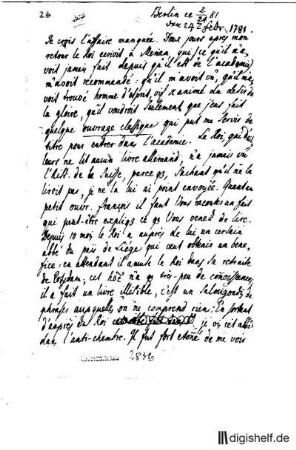 26
Berlin ce 2/81
den 24 Febr. 1781.
Je crois l'affaire manquée. Deux jours après mon
retour le Roi écrivit à Merian, qui (ce qu'il n'a-
voit jamais fait depuis qu'il est de l'académie)
m'avoit recommandé qu'il m'avoit vu, qu'il m'a
voit trouvé homme d'esprit, animé du désir de
la gloire, qu'il voudroit seulement que j'eus fait
quelque ouvrage classique qui put me servir de
titre pour entrer dans l'académie. Le Roi, qui d'ail
leurs ne lit aucun livre allemand, n'a jamais vu
l'Esth. de la Suisse, parce que, sachant qu'il ne la
liroit pas, je ne la lui ai point envoyée. Quant au
petit ouvr. françois il faut Vous raconter un fait
qui peut-être expliq ce que Vous venez de lire.
Depuis 10 mois le Roi a auprès de lui un certain
abbé du païs de Liège qui veut obtenir un béné-
fice: en attendant il amuse le Roi dans sa retraite
de Potsdam; cet abbé n'a que très-peu de connoissances,
il a fait un livre illisible, c'est un salmigondis de
phrases auxquelles on ne comprend rien. En sortant
d'auprès du Roi je vis cet abbé
dans l'anti-chambre. Il fut fort étonné de me voir
2846
digishelf.de